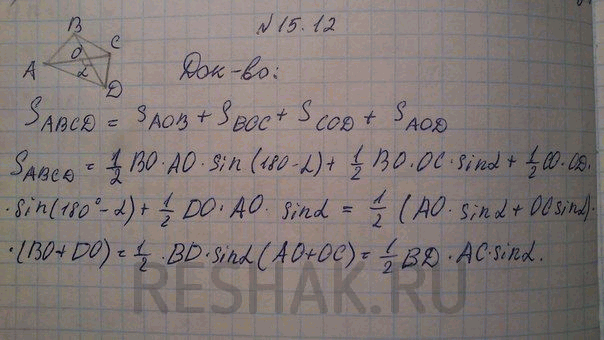 №15.12
B
O
C
A
α
D
Док-во:
S_ABCD = S_AOB + S_BOC + S_COD + S_AOD
S_ABCD = 1/2 BO·AO·sin(180-α) + 1/2 BO·OC·sinα + 1/2 CO·OD·
·sin(180°-α) + 1/2 DO·AO·sinα = 1/2 (AO·sinα + OCsinα)·
·(BO+DO) = 1/2·BD·sinα(AO+OC) = 1/2 BD·AC·sinα.
RESHAK.RU